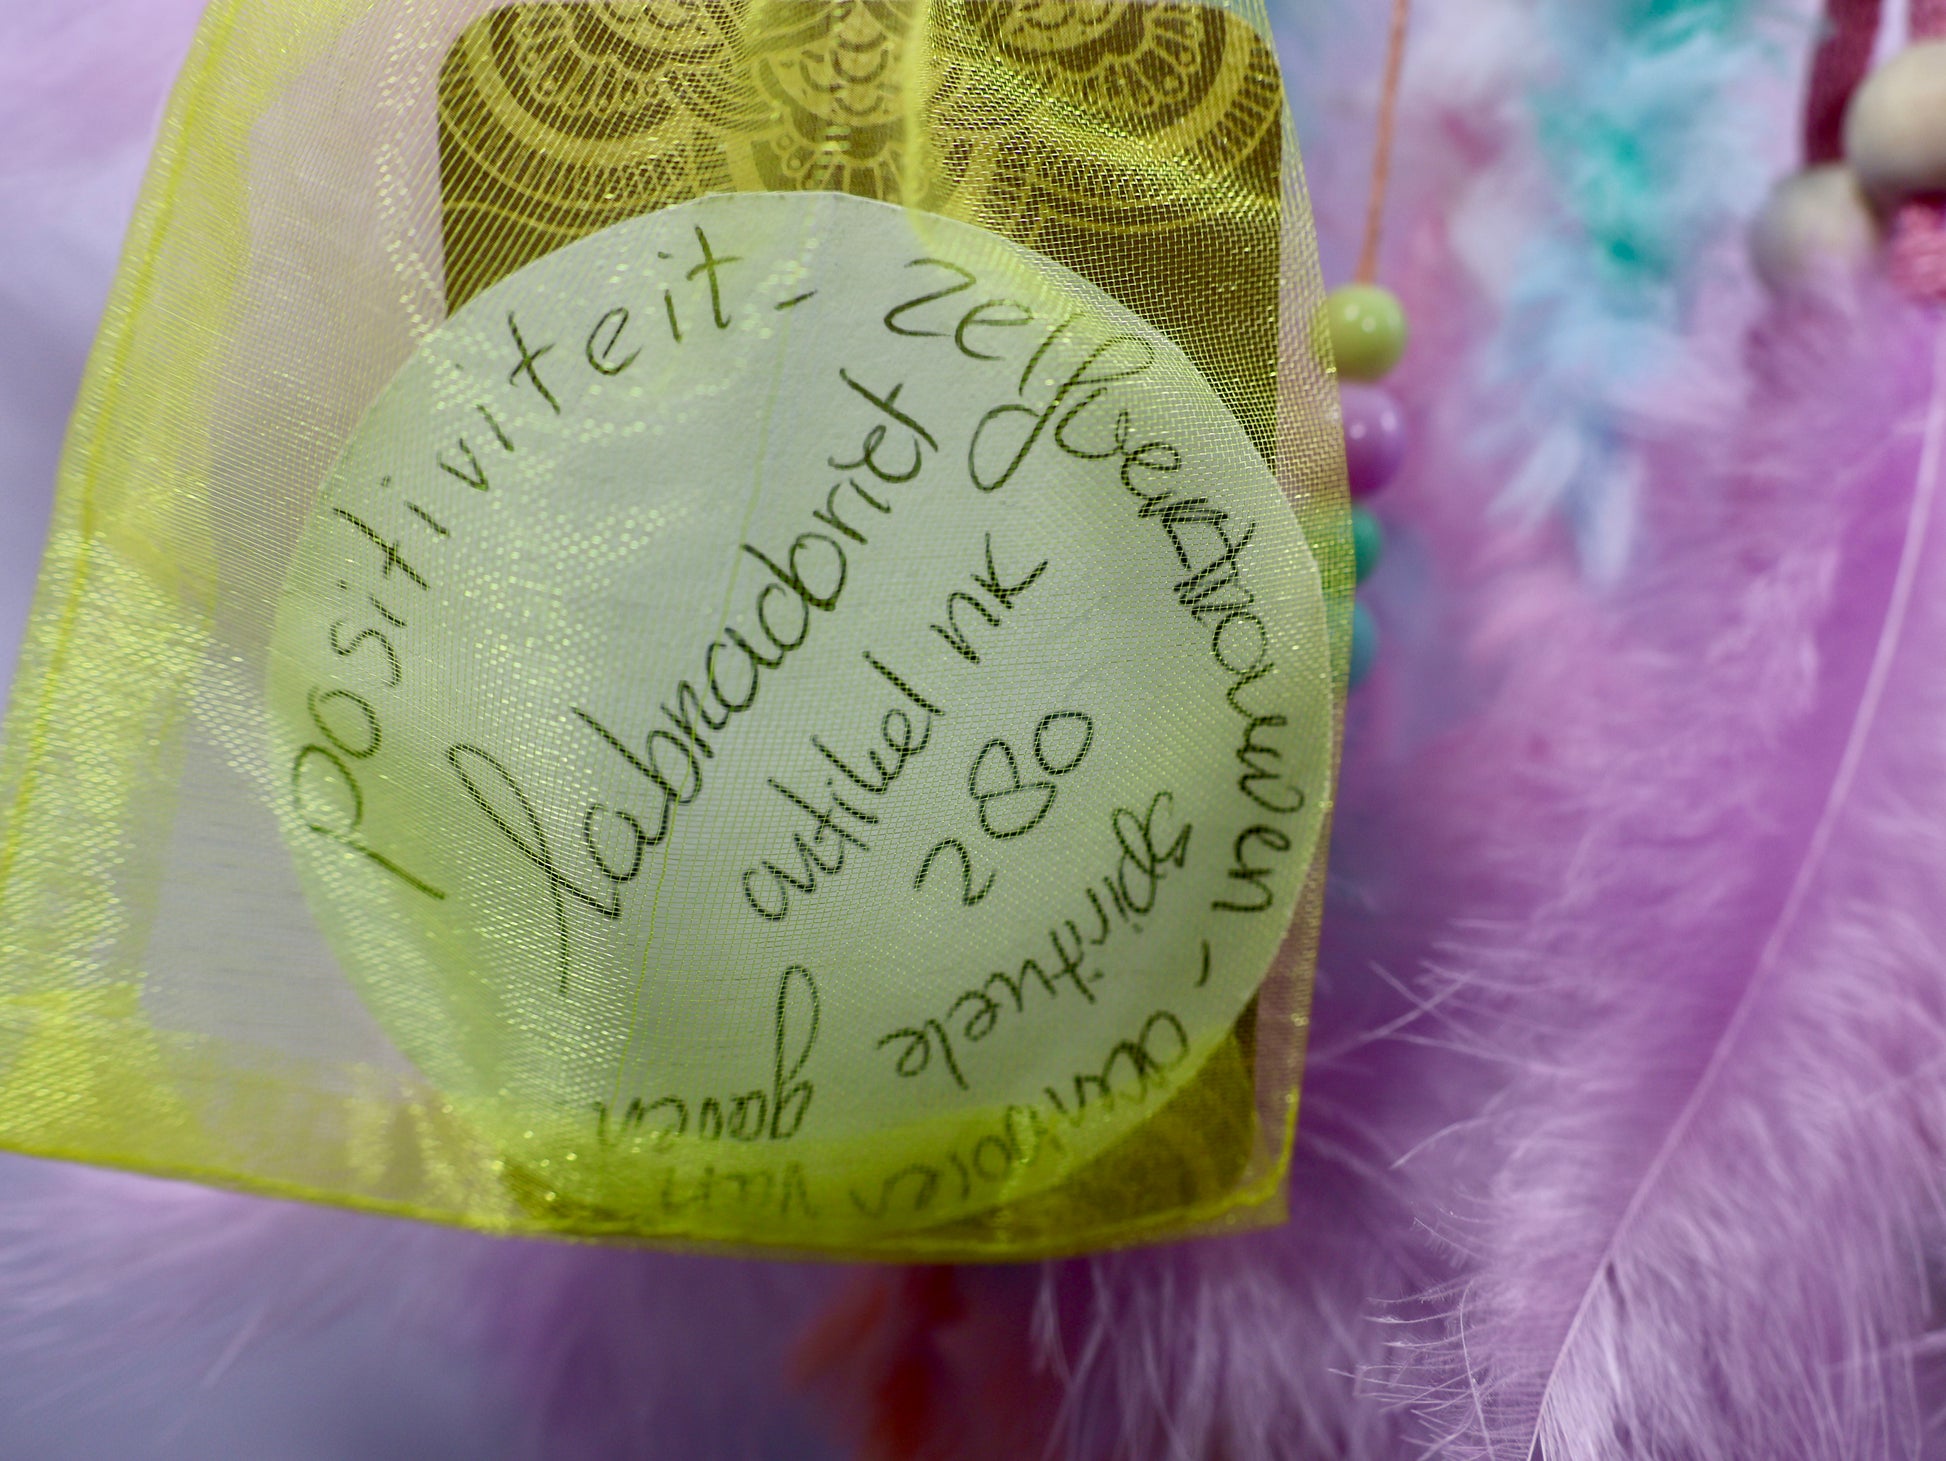 positiviteit - zelfvertrouwen -
aanwijzen van
spirituele
gaven
labradoriet
artikel nk
280